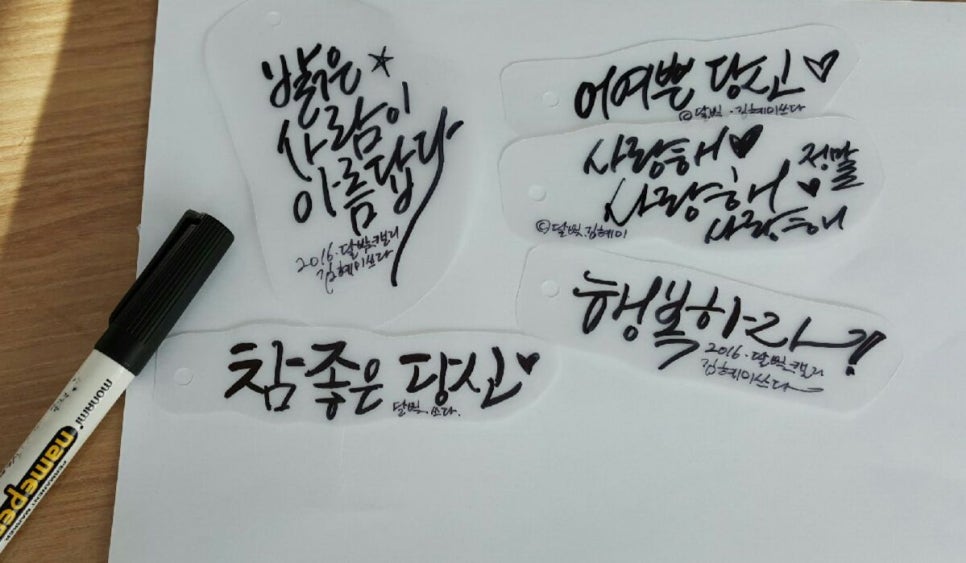 밝은
사람이
아름답다
2016.달빛캘리
김혜미쓰다
어여쁜 당신
©달빛.김혜미쓰다
사랑해
정말
사랑해
사랑해
©달빛.김혜미
행복하라
2016.달빛캘리
김혜미쓰다
참 좋은 당신
달빛.쓰다.
monami
namepen
PERMANENT MARKER